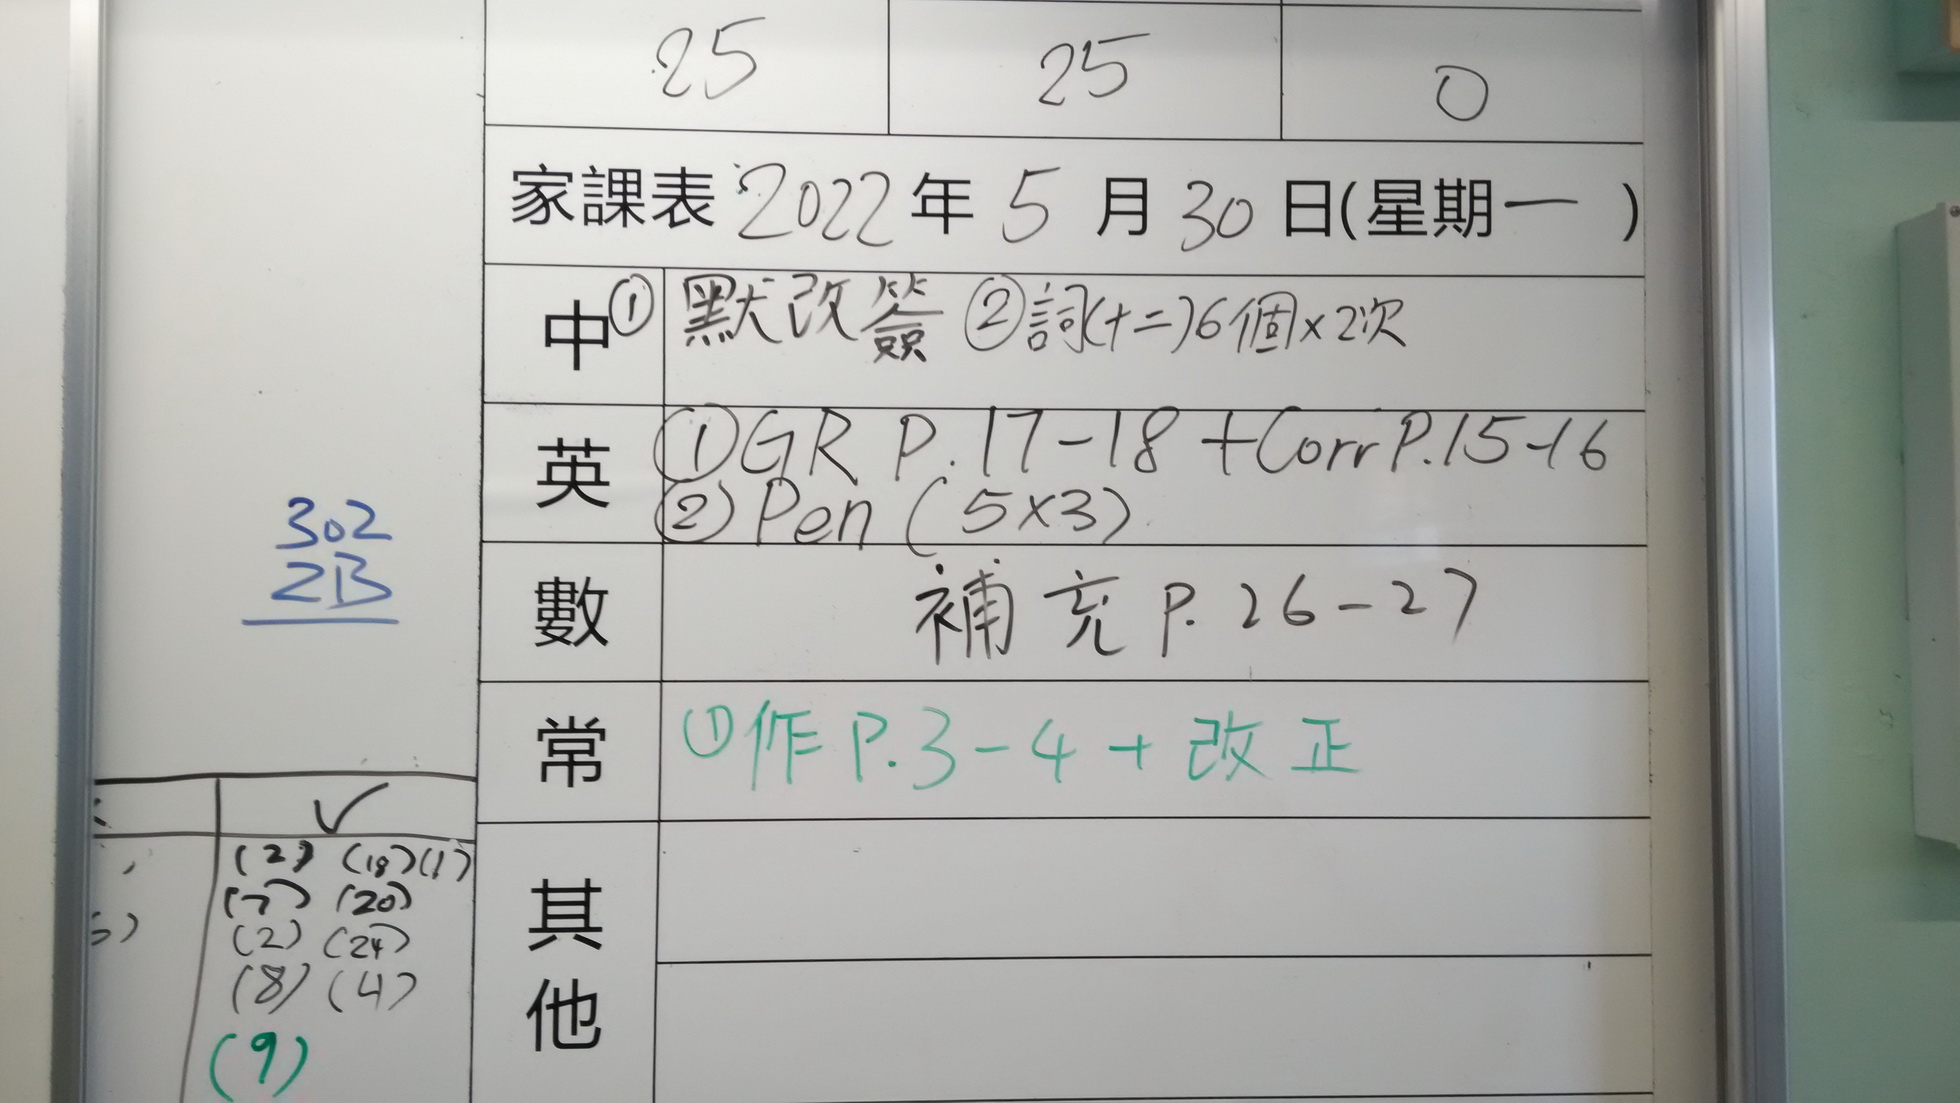 25 25 0
家課表 2022年 5 月 30 日(星期一 )
中 ① 默改簽 ②詞(十二)6個×2次
英 ①GR P.17-18 +Corr P.15-16
②Pen (5×3)
數 補充 P. 26-27
常 ①作 P.3-4 + 改正
其他
302
2B
✓
(2) (18) (1)
(7) (20)
(2) (24)
(8) (4)
(9)